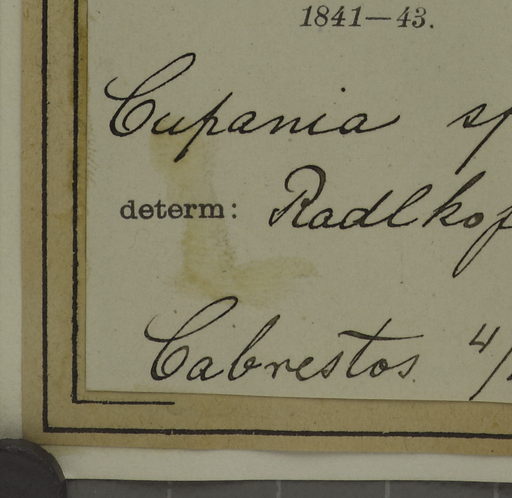 1841—43.
Cupania sp
determ: Radlkof
Cabrestos. 4/